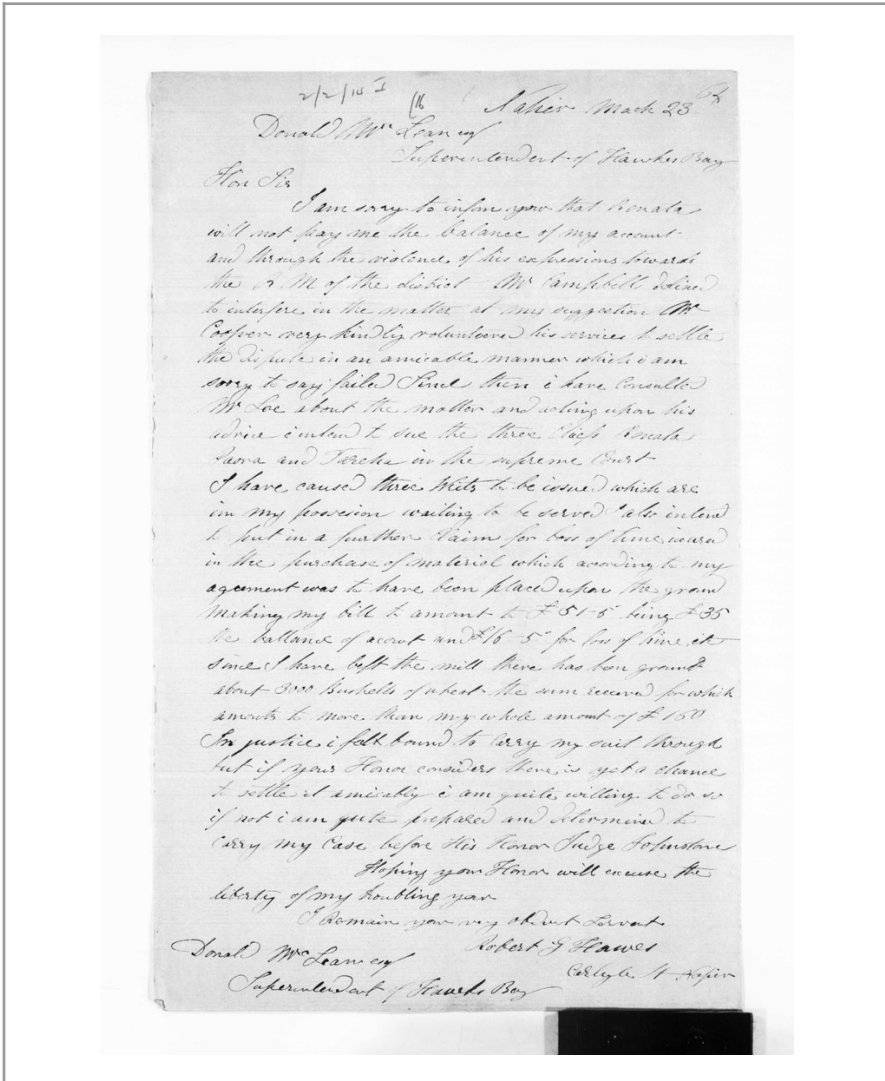 2/2/14
Napier March 23 64
Donald McLean esq
Superintendent of Hawkes Bay
Hon Sir
I am sorry to inform you that Renata
will not pay me the balance of my account
and through the violence of his expressions towards
the R M of the district Mr Campbell declined
to interfere in the matter at my suggestion Mr
Cooper very kindly volunteered his services to settle
the dispute in an amicable manner which i am
sorry to say failed Since then i have consulted
Mr Lee about the matter and acting upon his
advice i intend to sue the three Chiefs Renata
Paora and Tareha in the supreme Court
I have caused three Writs to be issued which are
in my possesion waiting to be served I also intend
to put in a further Claim for loss of time incured
in the purchase of material which according to my
agreement was to have been placed upon the ground
making my bill to amount to £51-5 being £35
the ballance of account and £16-5 for loss of time etc
since I have left the mill there has been ground
about 3000 Bushells of wheat the sum received for which
amounts to more than my whole amount of £160
In justice i felt bound to carry my suit through
but if your Honor considers there is yet a chance
to settle it amicably i am quite willing to do so
if not i am quite prepared and determined to
carry my Case before His Honor Judge Johnstone
Hoping your Honor will excuse the
liberty of my troubling you
I Remain your very obedient Servant
Robert G Hawes
Carlyle St Napier
Donald McLean esq
Superintendent of Hawks Bay